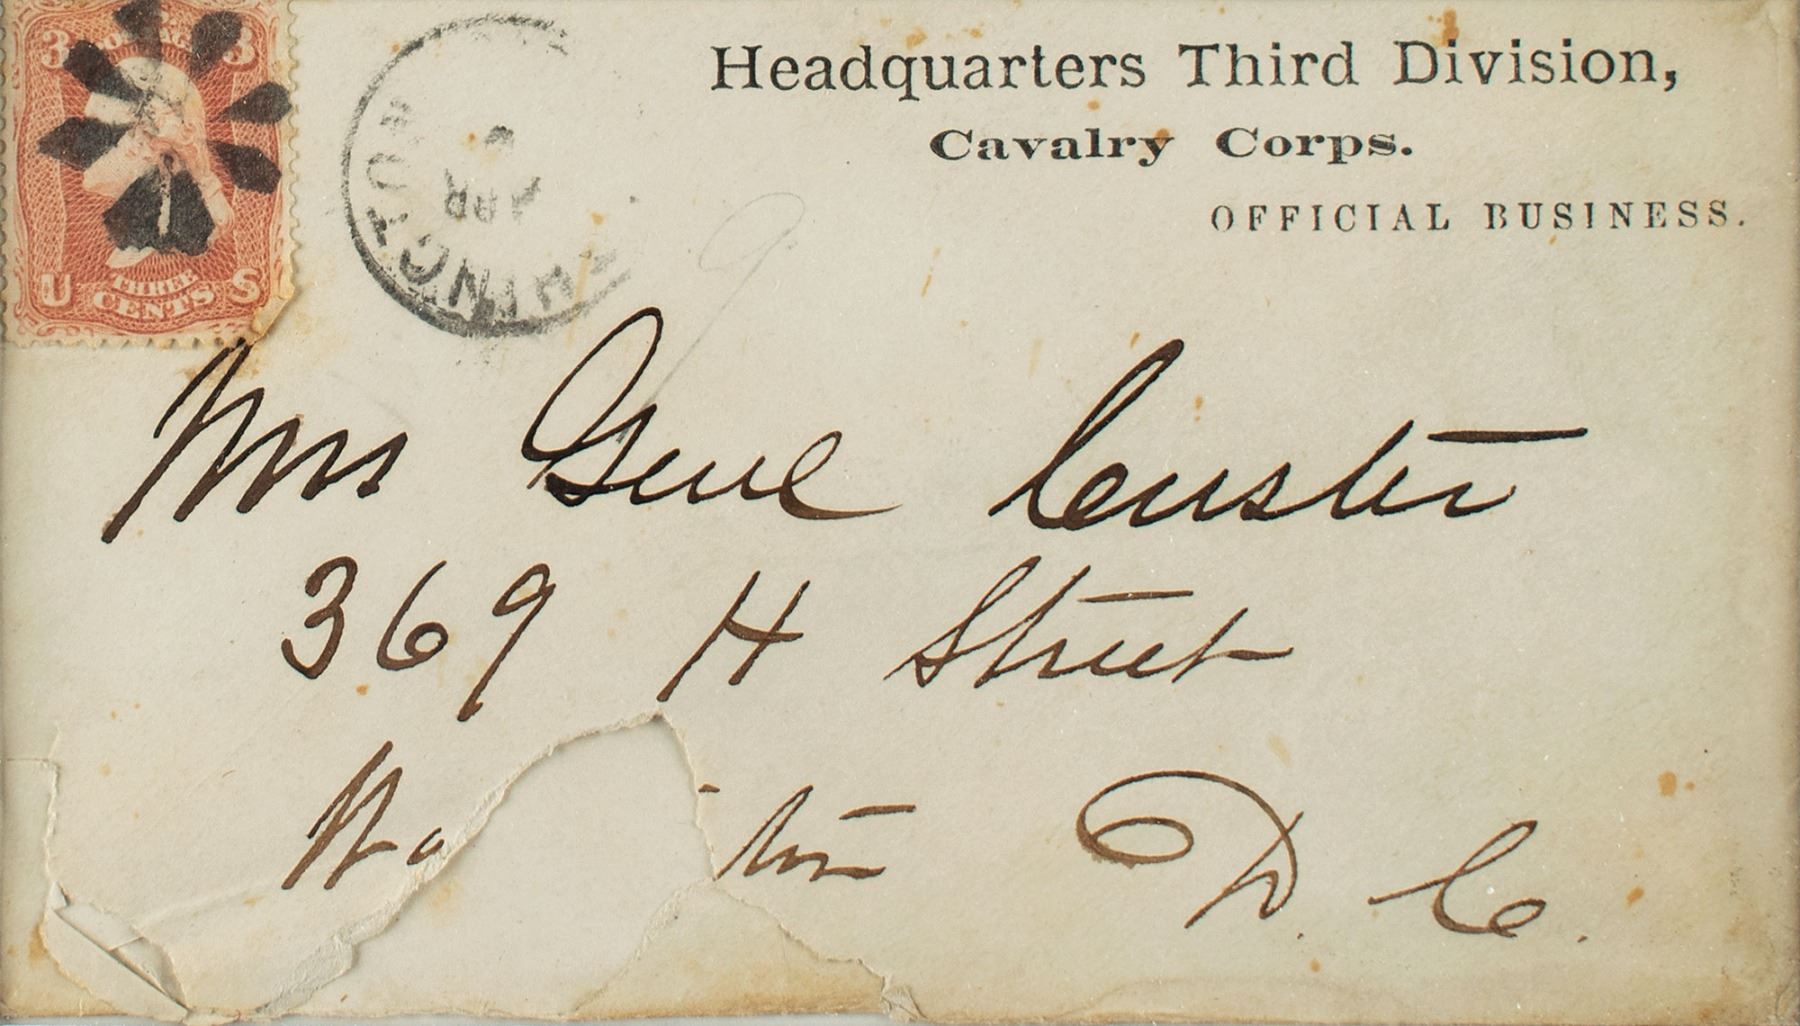 3 3
U THREE S
CENTS
APR
Headquarters Third Division,
Cavalry Corps.
OFFICIAL BUSINESS.
Mrs Genl Custer
369 H Street
D. C.